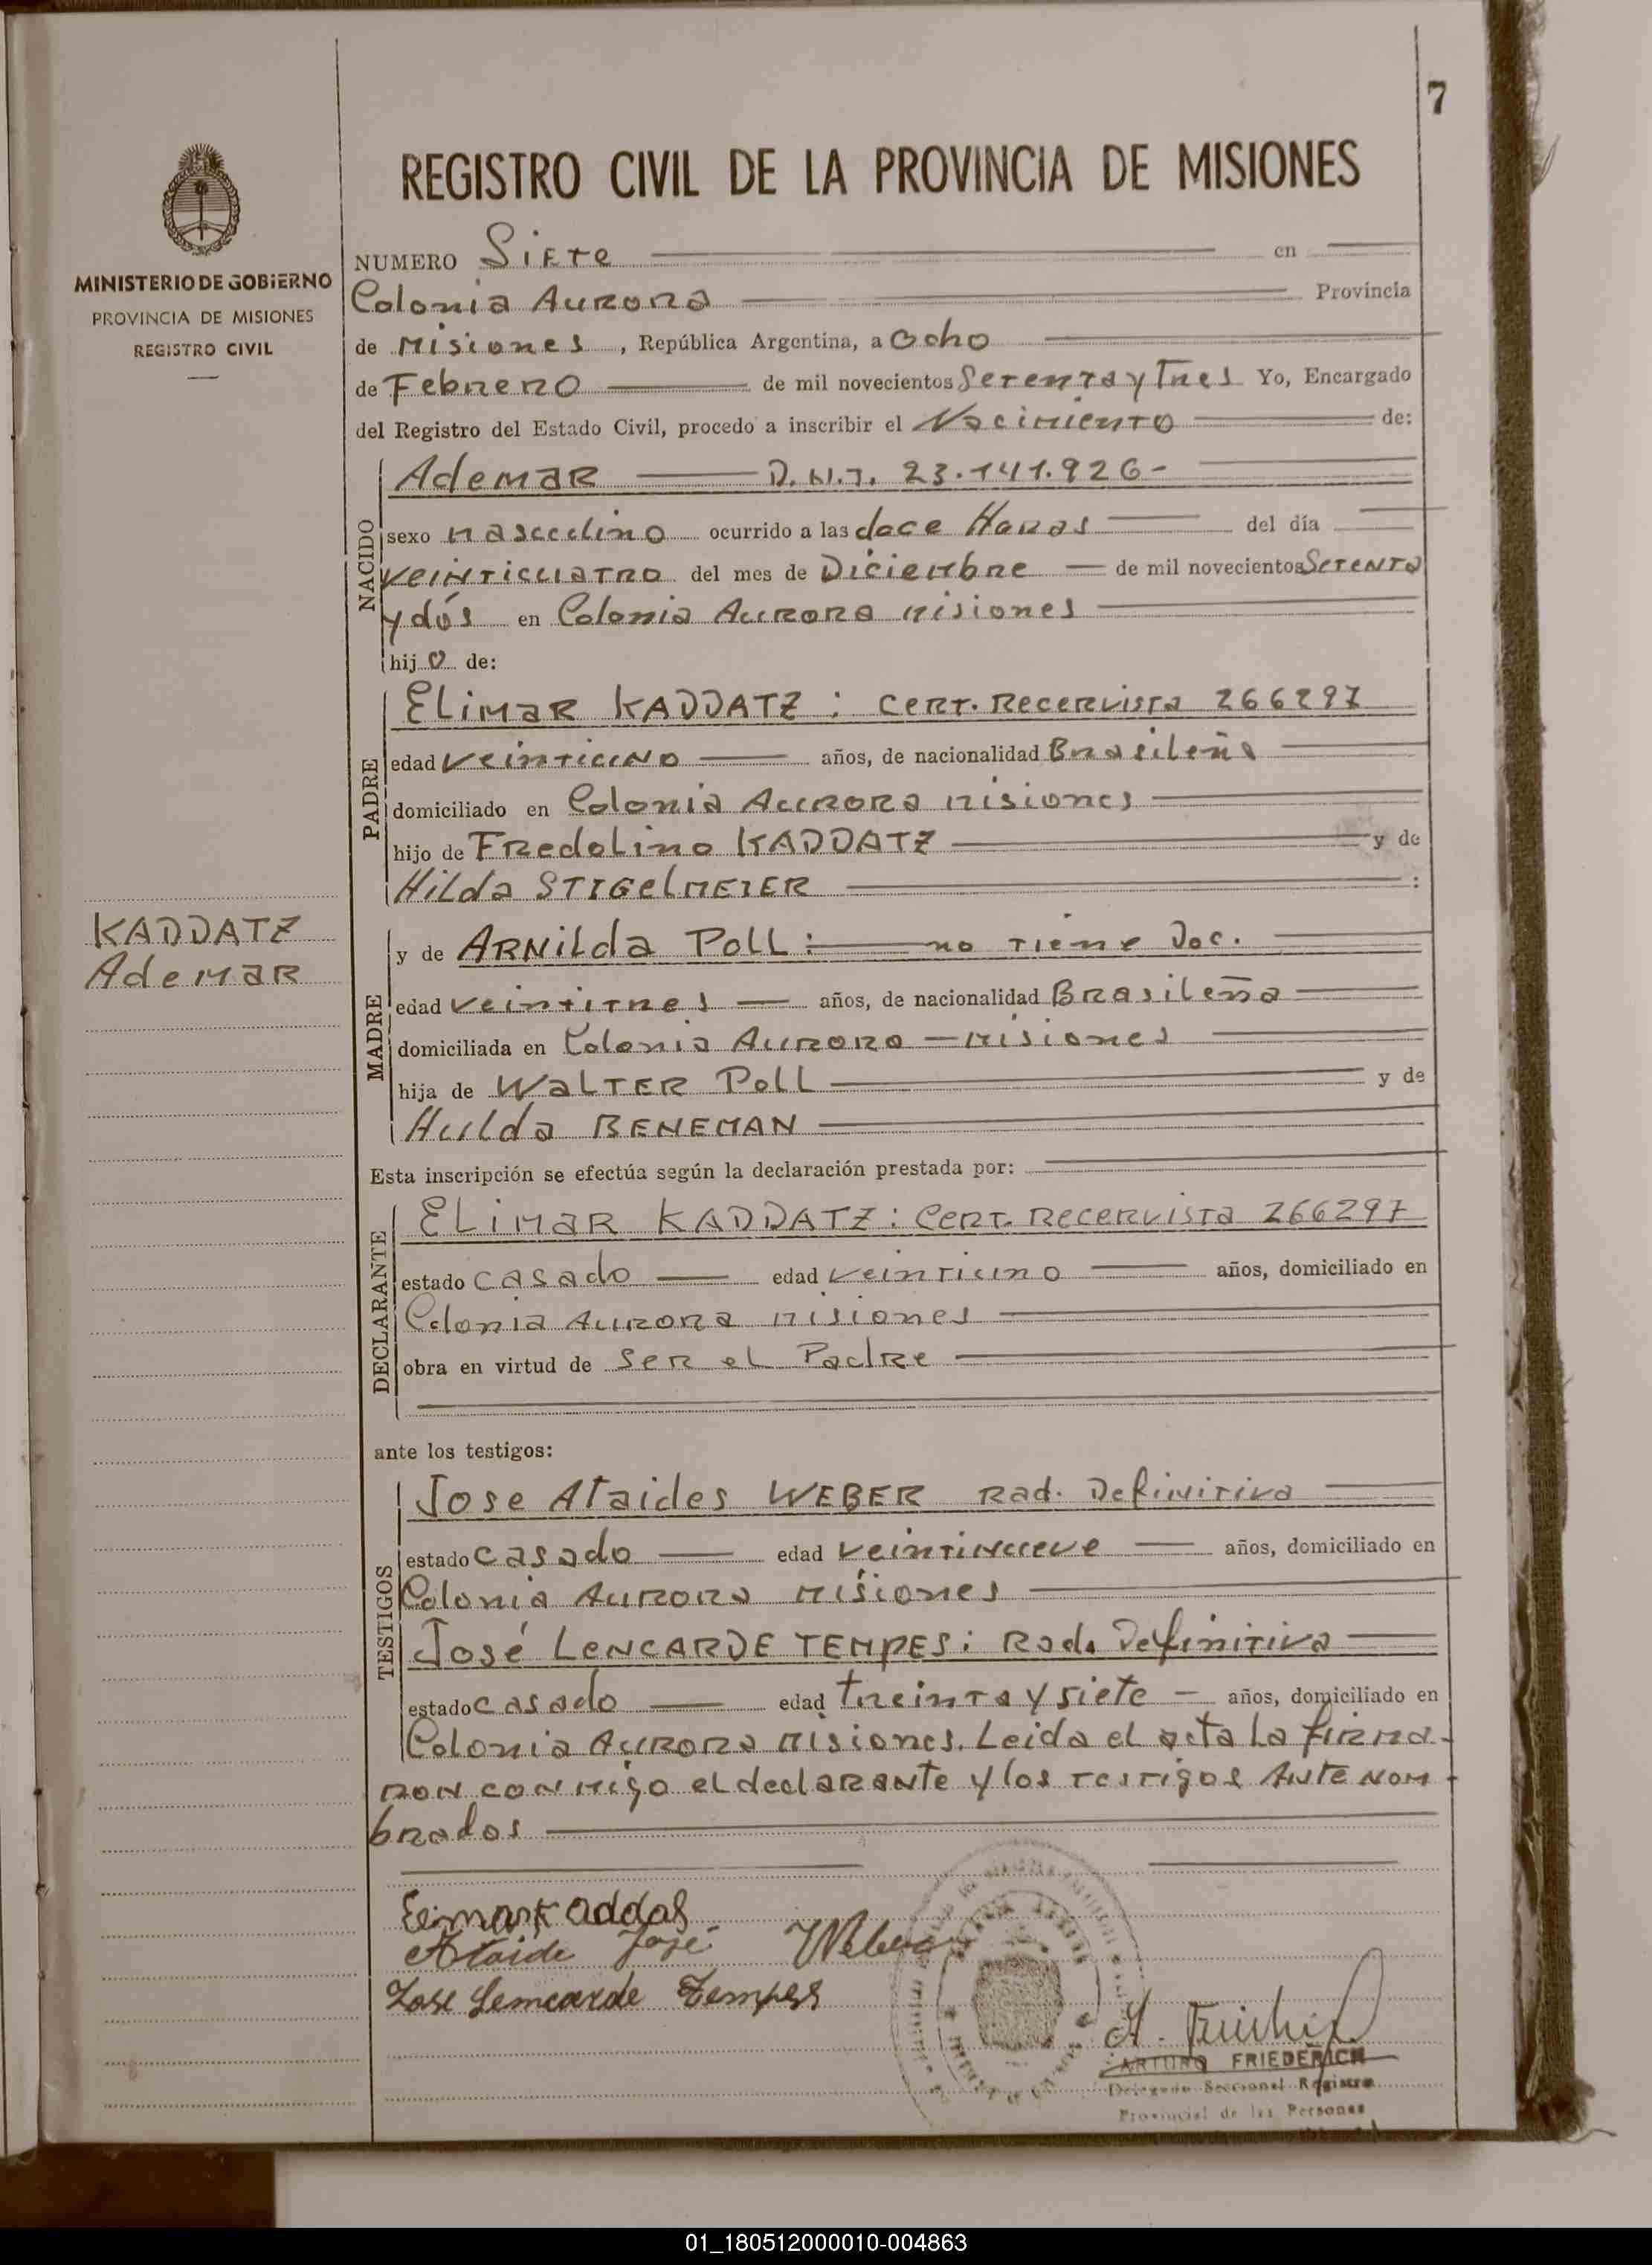 7
REGISTRO CIVIL DE LA PROVINCIA DE MISIONES
MINISTERIO DE GOBIERNO
PROVINCIA DE MISIONES
REGISTRO CIVIL
NUMERO Siete en
Colonia Aurora Provincia
de Misiones, República Argentina, a Ocho
de Febrero de mil novecientos Setenta y Tres Yo, Encargado
del Registro del Estado Civil, procedo a inscribir el Nacimiento de:
NACIDO
Ademar D.N.I. 23.141.926-
sexo masculino ocurrido a las doce Horas del día
veinticuatro del mes de Diciembre de mil novecientos Setenta
y dós en Colonia Aurora Misiones
hijo de:
PADRE
Elimar KADDATZ: Cert. Recervista 266297
edad veintiuno años, de nacionalidad Brasileña
domiciliado en Colonia Aurora Misiones
hijo de Fredolino KADDATZ y de
Hilda STIGelMEIER :
KADDATZ
Ademar
MADRE
y de ARNilda Poll: no tiene Doc.
edad veintitres años, de nacionalidad Brasileña
domiciliada en Colonia Aurora - Misiones
hija de WALTER Poll y de
Hulda BENEMAN
Esta inscripción se efectúa según la declaración prestada por:
DECLARANTE
ELIMAR KADDATZ: Cert. Recervista 266297
estado casado edad veintiuno años, domiciliado en
Colonia Aurora Misiones
obra en virtud de ser el Padre
ante los testigos:
TESTIGOS
Jose Ataides WEBER Rad. Definitiva
estado casado edad veintinueve años, domiciliado en
Colonia Aurora Misiones
José LENCARDE TEMPES: Rad. Definitiva
estado casado edad treinta y siete - años, domiciliado en
Colonia Aurora Misiones. Leida el acta la firma-
ron conmigo el declarante y los testigos Ante nom-
brados
Elimar Kaddas
Ataide José Weber
Jose Lencarde Tempes
A. Friederich
ARTURO FRIEDERICH
Delegado Seccional Registro
Provincial de las Personas
01_180512000010-004863